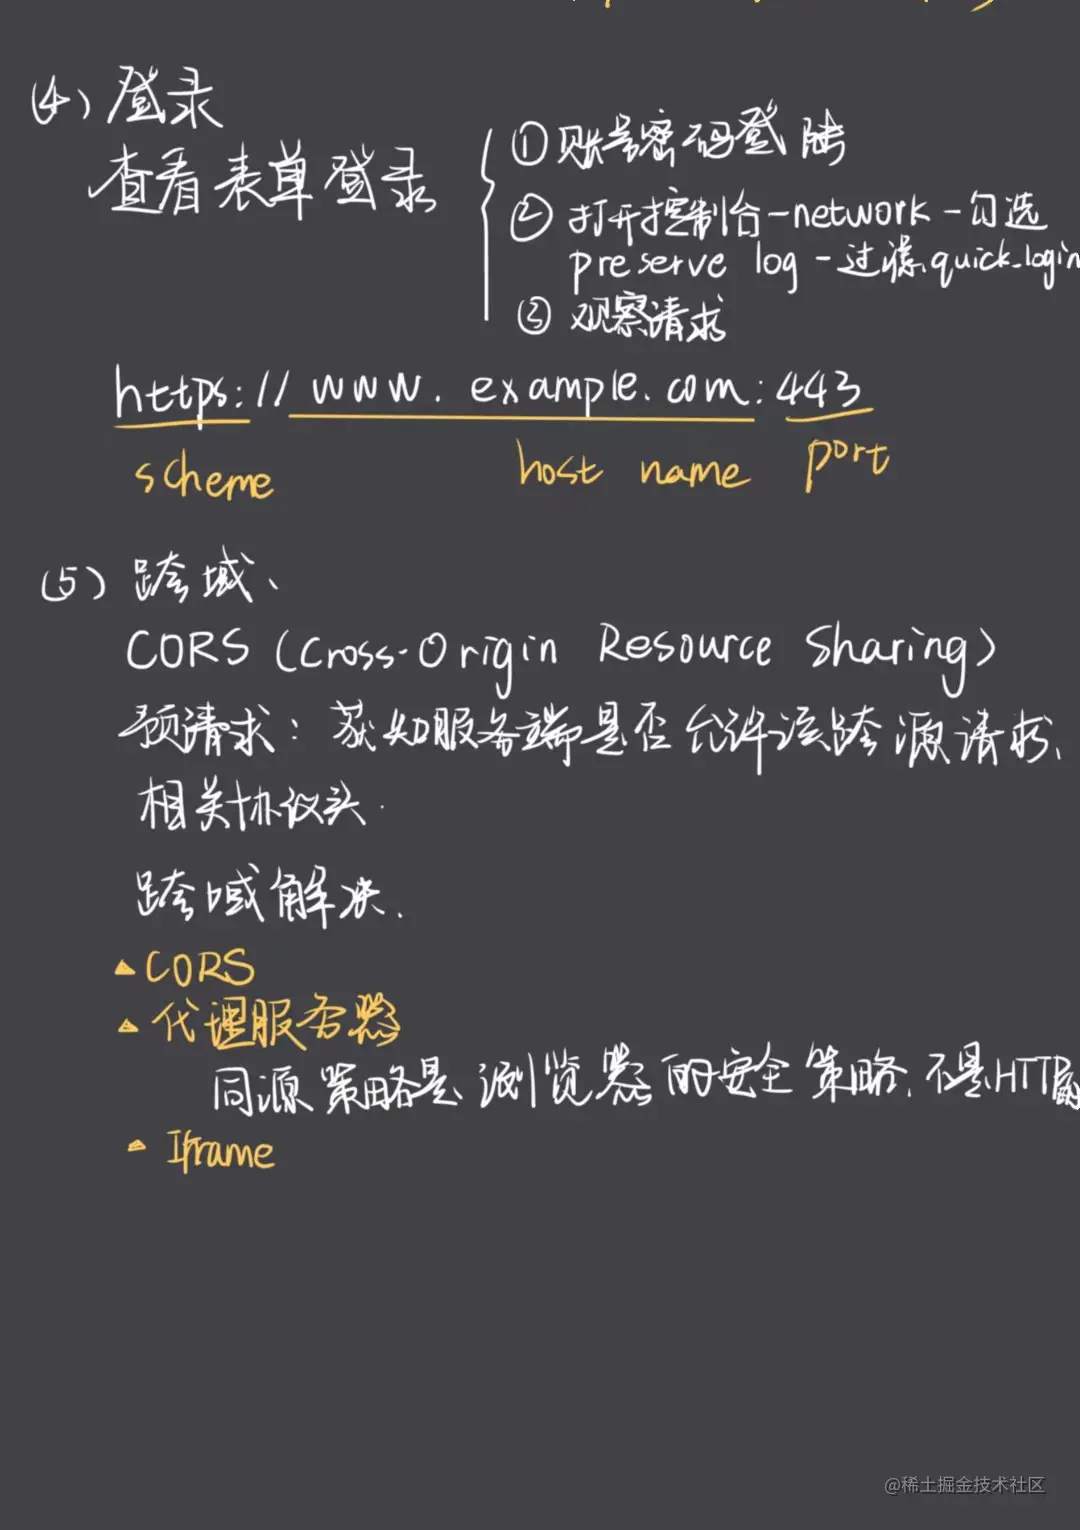 (4) 登录
查看表单登录
① 账号密码登陆
② 打开控制台-network-勾选
preserve log-过滤quick_login
③ 观察请求
https://www.example.com:443
scheme host name port
(5) 跨域、
CORS (Cross-Origin Resource Sharing)
预请求: 获知服务端是否允许该跨源请求、
相关协议头.
跨域解决.
CORS
代理服务器
同源策略是浏览器的安全策略, 不是HTTP
Iframe
@稀土掘金技术社区